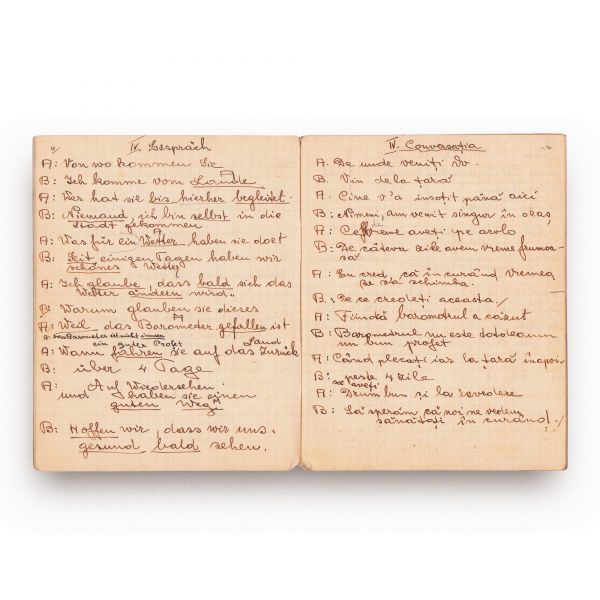 IV. Gespräch
A: Von wo kommen Sie
B: Ich komme vom Lande.
A: Wer hat sie bis hierher begleitet
B: Niemand, ich bin selbst in die
Stadt gekommen
A: Was für ein Wetter haben sie dort
B: Seit einigen Tagen haben wir
schönes Wetter
A: Ich glaube, dass bald sich das
Wetter ändern wird.
B: Warum glauben sie dieses
A: Weil das Barometer gefallen ist
B: Das Barometer ist nicht immer
ein guter Profet
Land
A: Wann fahren sie auf das Zurück
B: über 4 Tage
A: Auf Wiedersehen.
und haben sie einen
guten Weg
B: Hoffen wir, dass wir uns
gesund bald sehen.
IV. Conversația
A. De unde veniți Dv.
B. Vin de la țară
A. Cine v'a insoțit până aici
B: Nimeni, am venit singur în oraș
de
A: Ce vreme aveți pe acolo
B: De câteva zile avem vreme frumoa-
să
A: Eu cred, că în curând vremea
se va schimba.
B. De ce credeți aceasta
A: Fiindă barometrul a căzut
B: Barometrul nu este totdeauna
un bun profet
A: Când plecați iar la țară înapoi
B: peste 4 zile
să aveți
A: Drum bun și la revedere
B: Să sperăm, că noi ne vedem
sănătați în curând!